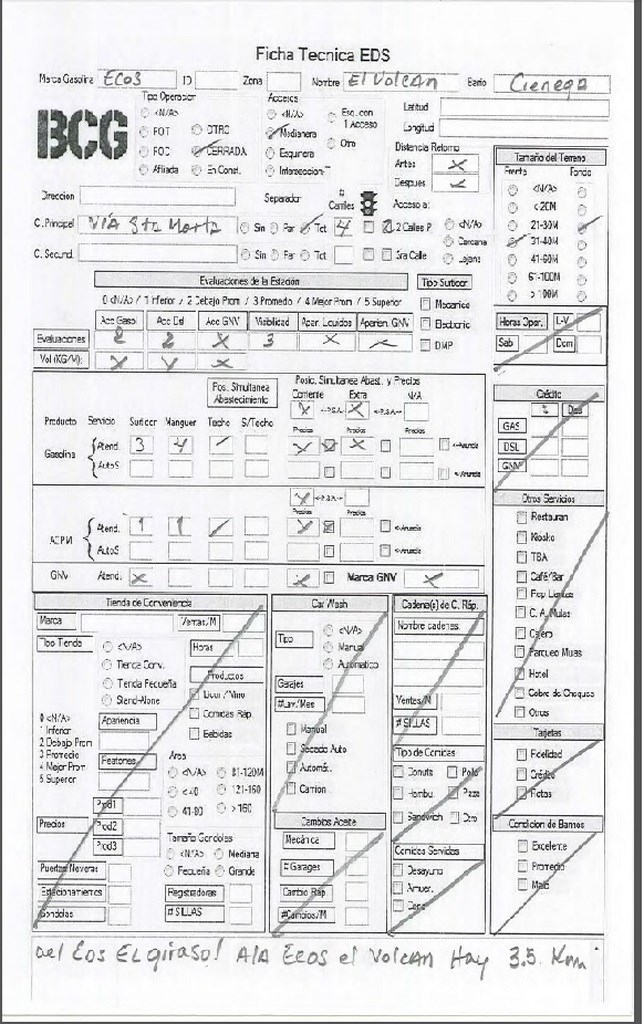 Ficha Tecnica EDS
Marca Gasolina ECOS ID Zona Nombre El Volcan Barrio Cienega
Tipo Operador Accesos Latitud
<N/A> <N/A> Esq. con 1 Acceso Longitud
BCG
FOT OTRO Medianera Otro
FOC CERRADA Esquinera Distancia Retorno
Afiliada En Const. Interseccion-T Antes X
Despues
Tamaño del Terreno
Frente Fondo
<N/A>
< 20M
21-30M
31-40M
41-60M
61-100M
> 100M
Direccion Separador # Carriles Acceso a:
C. Principal VÍA Sta Marta Sin Par Tct 4 2 Calles P <N/A>
Cercana
C. Secund. Sin Par Tct 3ra Calle Lejana
Evaluaciones de la Estación Tipo Surtidor
0 <N/A> / 1 Inferior / 2 Debajo Prom / 3 Promedio / 4 Mejor Prom / 5 Superior Mecanico
Acc Gasol Acc Dsl Acc GNV Visibilidad Apar. Liquidos Aparien. GNV Electronic
Evaluaciones 2 2 X 3 X X DMP
Vol (KG/M): X X X
Horas Oper. L-V
Sab Dom
Pos. Simultanea Abastecimiento Posic. Simultanea Abast. y Precios
Corriente Extra N/A
X <-P.S.A.-> X <-P.S.A.->
Producto Servicio Surtidor Manguer Techo S/Techo Precios Precios Precios
Gasolina Atend. 3 4 X X <-Anuncia
AutoS <-Anuncia
Crédito
% Dias
GAS
DSL
GNV
X <-P.S.A.->
Precios Precios
ACPM Atend. 1 1 X X <-Anuncia
AutoS <-Anuncia
GNV Atend. X X Marca GNV X
Otros Servicios
Restauran
Kiosko
TBA
Café/Bar
Rep Llantas
C. A. Mulas
Cajero
Parqueo Mulas
Hotel
Cobro de Cheques
Otros
Tienda de Conveniencia
Marca Ventas/M
Tipo Tienda <N/A> Horas
Tienda Conv.
Tienda Pequeña Productos
Stand-Alone Licor / Vino
0 <N/A> Apariencia Comidas Rap.
1 Inferior
2 Debajo Prom Bebidas
3 Promedio Peatones Area
4 Mejor Prom <N/A> 81-120M
5 Superior < 40 121-160
Prod1 41-80 > 160
Precios Prod2 Tamaño Gondolas
Prod3 <N/A> Mediana
Puertas Neveras Pequeña Grande
Estacionamientos Registradoras
Gondolas # SILLAS
Car Wash
Tipo <N/A>
Manual
Automatico
Garajes
#Lav./Mes
Manual
Secado Auto
Automát.
Camion
Cambios Aceite
Mecánica
# Garages
Cambio Rap.
#Cambios/M
Cadena(s) de C. Ráp.
Nombre cadenas:
Ventas/M
# SILLAS
Tipo de Comidas
Donuts Pollo
Hambu. Pizza
Sandwich Otro
Comidas Servidas
Desayuno
Almuer.
Cena
Tarjetas
Fidelidad
Crédito
Flotas
Condicion de Baños
Excelente
Promedio
Malo
Del Eos ELgirasol AlA Ecos el Volcan Hay 3.5. Km